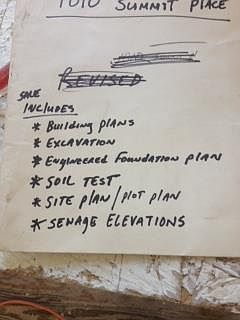 1010 SUMMIT PLACE
REVISED
SAVE
INCLUDES
* Building plans
* EXCAVATION
* Engineered Foundation plan
* SOIL TEST
* SITE plan/plot plan
* SEWAGE ELEVATIONS